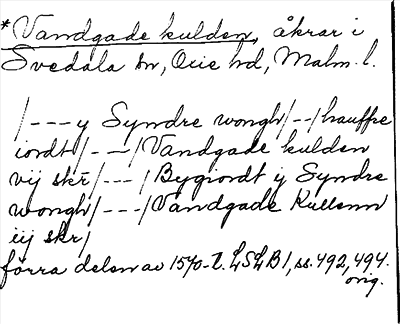 *Vandgade kulden, åkrar i
Svedala sn, Oxie hd, Malm. l.
/---y Syndre wongh/--/hauffre
iordt/---/Vandgade kulden
vij skr̄/---/Bygiordt y Syndre
wongh/---/Vandgade Kullenn
iij skr/
förra delen av 1570-t. LSLB1, ss. 492, 494.
orig.